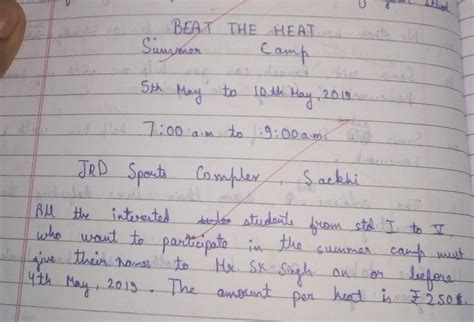 BEAT THE HEAT
Summer Camp
5th May to 10th May, 2019
7:00 a.m to 9:00 a.m.
JRD Sports Complex, Sackhi
All the interested students from std I to V,
who want to participate in the summer camp must
give their names to Mr. SK Singh on or before
4th May, 2019. The amount per heat is ₹250